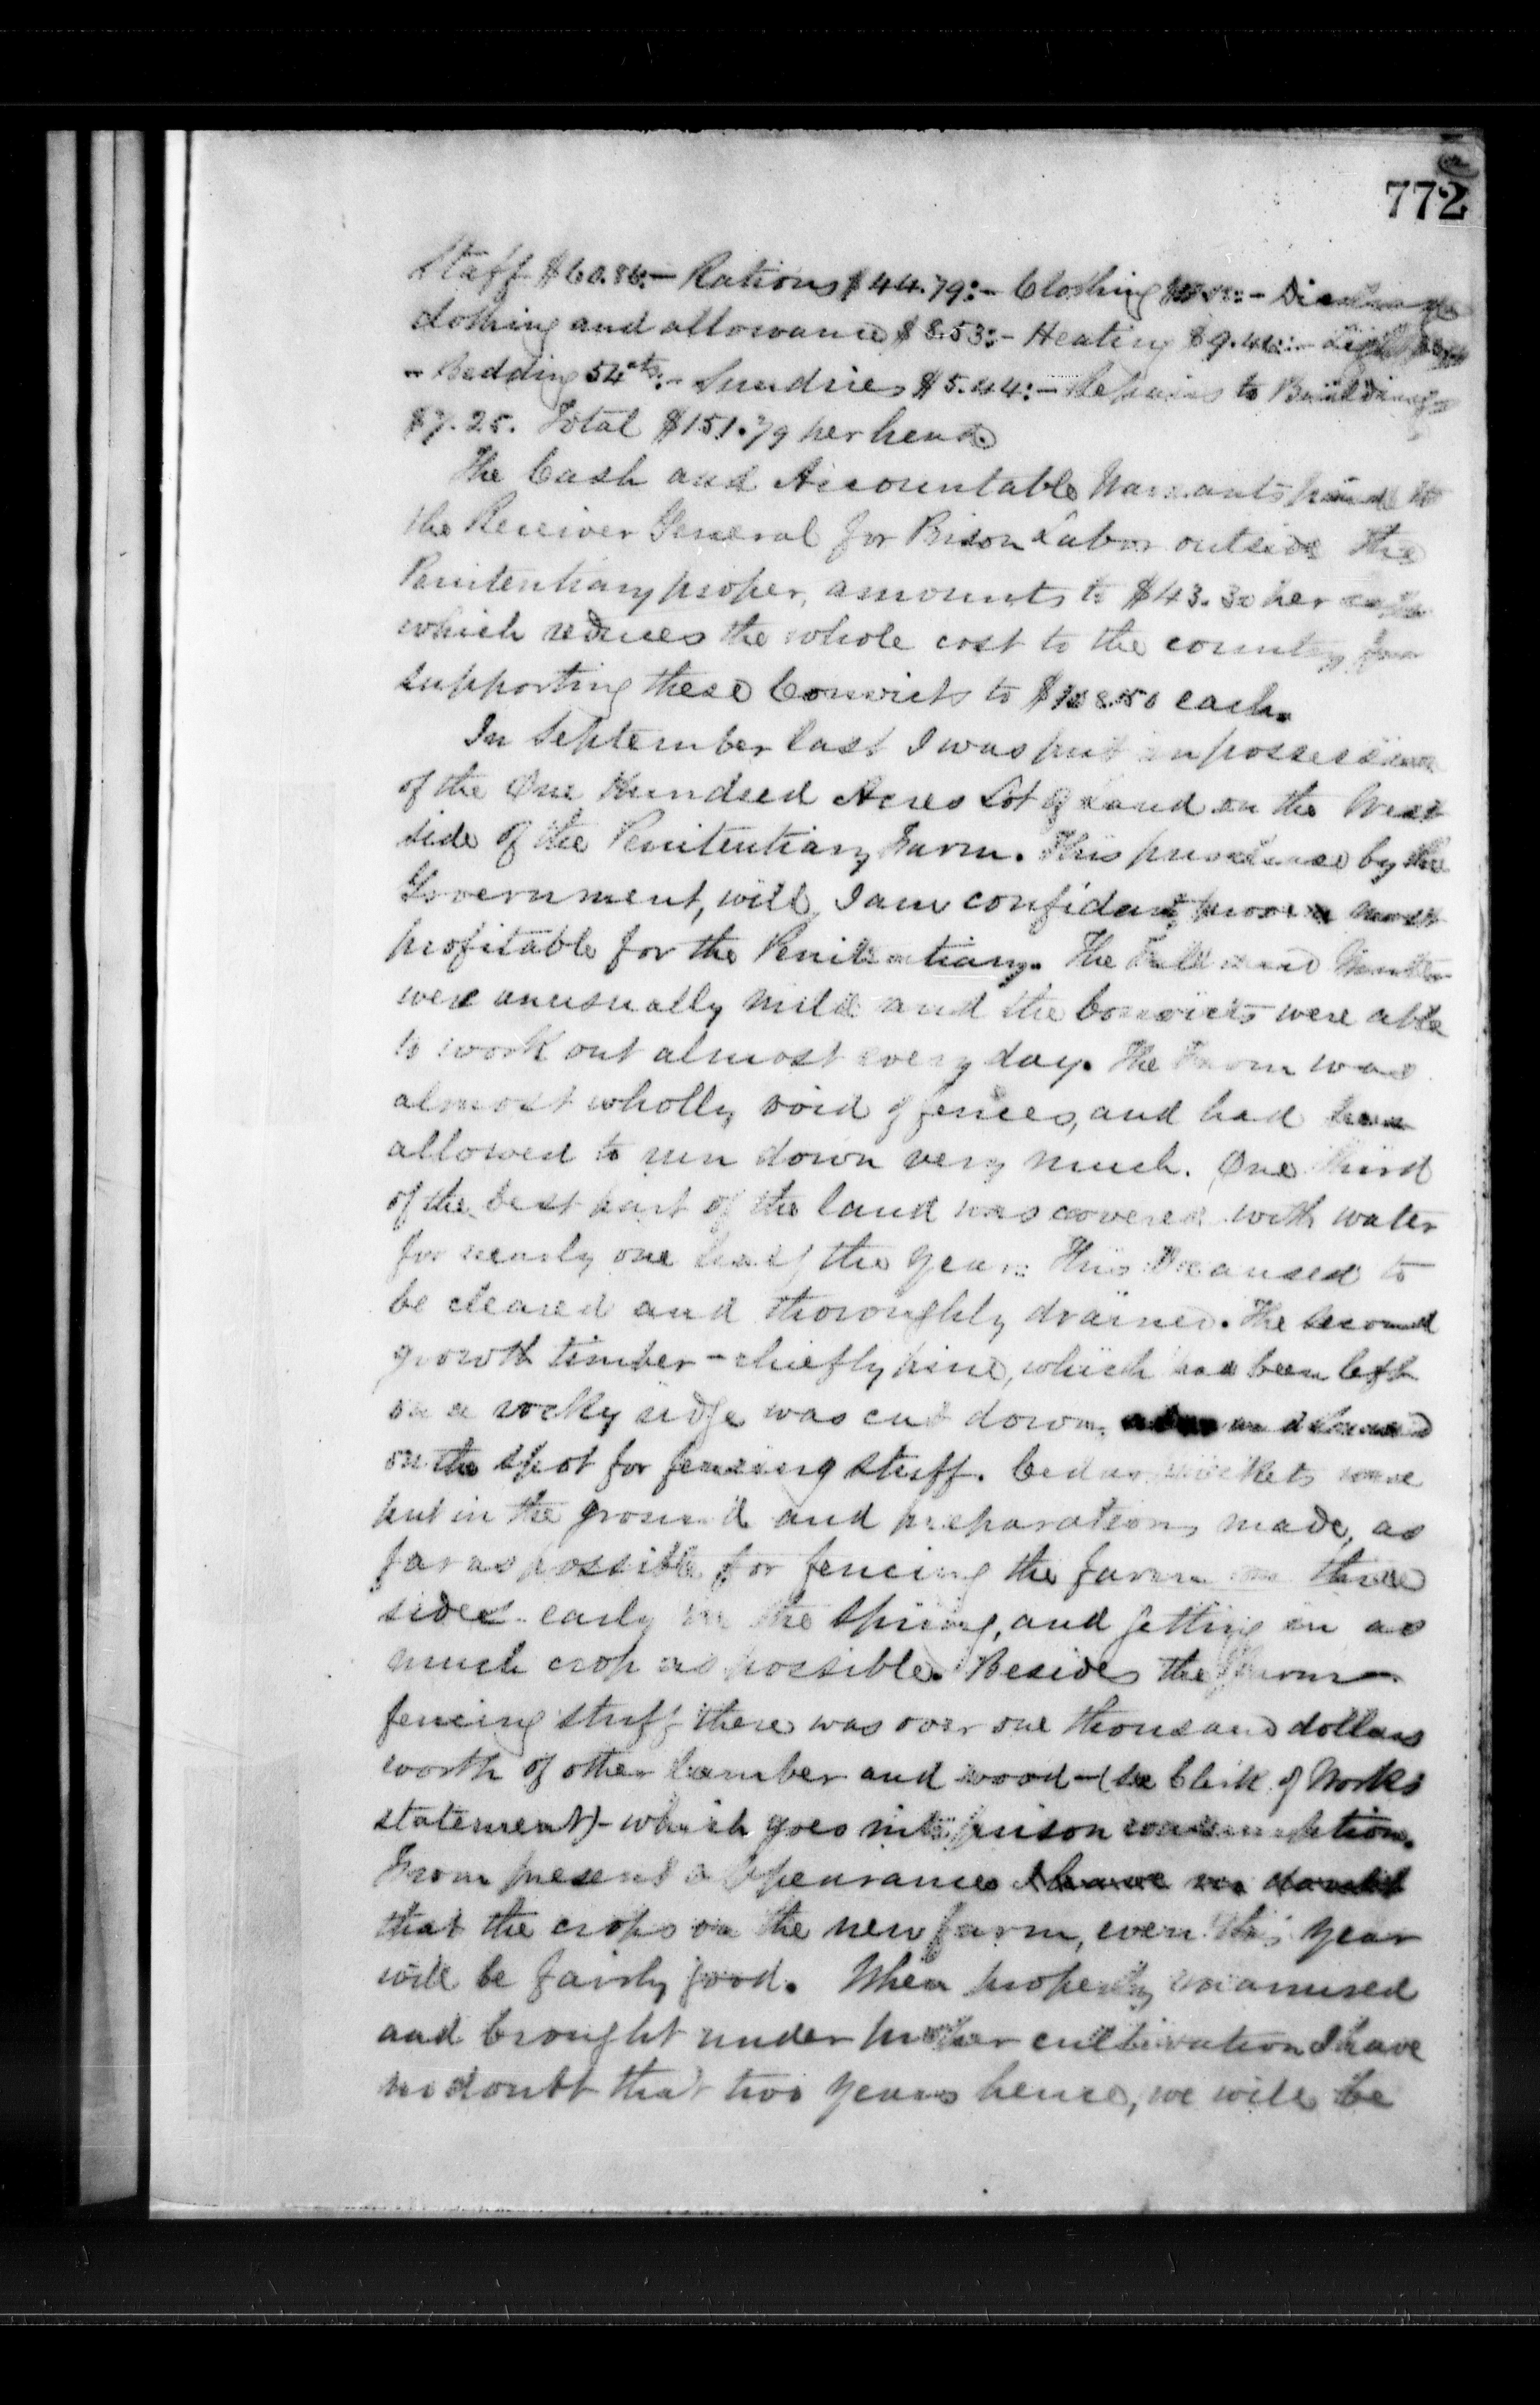 772
Staff $60.86:- Rations $44.79:- Clothing :- Discharge
clothing and allowance $8.53:- Heating $9.41:- Light
- Bedding 54cts:- Sundries $5.44:- Repairs to Buildings
$7.25. Total $151.79 per head.
The Cash and Accountable Warrants paid to
the Receiver General for Prison Labor outside the
Penitentiary proper, amounts to $43.30 per
which reduces the whole cost to the country for
supporting these Convicts to $108.50 each.
In September last I was put in possession
of the One Hundred Acres Lot of Land on the West
side of the Penitentiary Farm. This purchase by the
Government, will, I am confident, prove most
profitable for the Penitentiary. The Fall and Winter
were unusually mild and the Convicts were able
to work out almost every day. The Farm was
almost wholly void of fences, and had been
allowed to run down very much. One third
of the best part of the land was covered with water
for nearly one half the year: This I caused to
be cleared and thoroughly drained. The second
growth timber - chiefly pine, which had been left
on a rocky ridge was cut down, and
on the spot for fencing stuff. Cedar pickets were
put in the ground and preparations made, as
far as possible for fencing the farm on three
sides early in the Spring, and getting in as
much crop as possible. Besides the Farm
fencing stuff there was over one thousand dollars
worth of other lumber and wood - (see Clerk of Works
statement) - which goes into prison consumption.
From present appearances I have no doubt
that the crops on the new farm, even this year
will be fairly good. When properly manured
and brought under proper cultivation I have
no doubt that two years hence, we will be